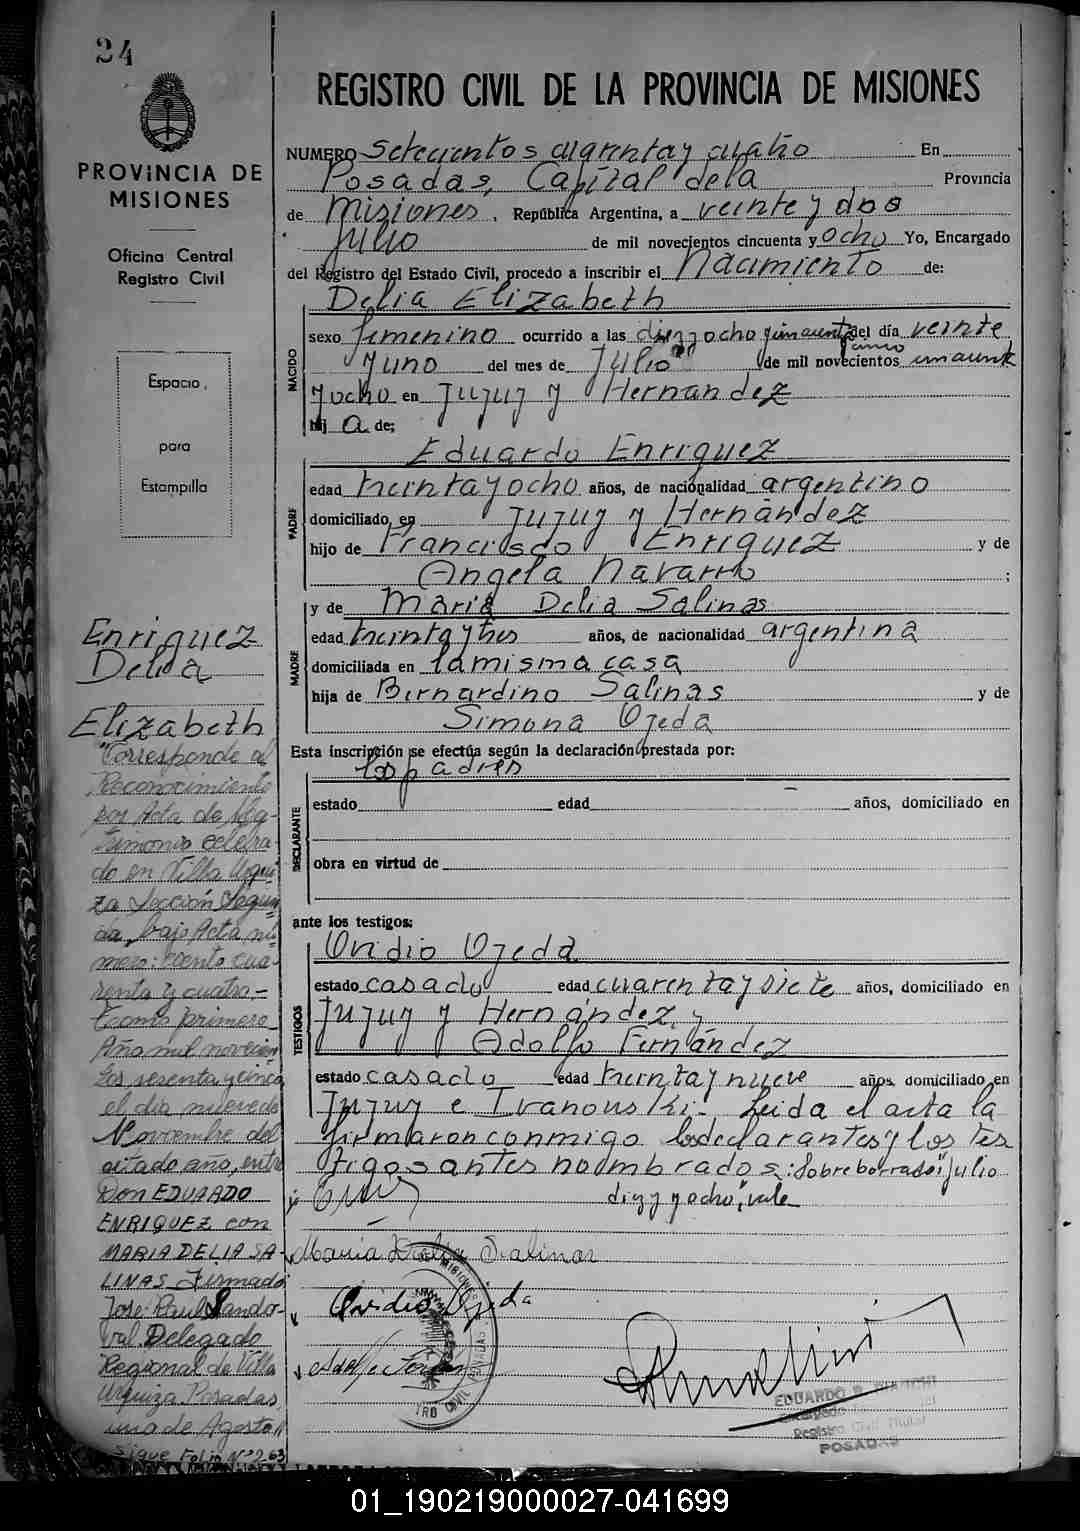 24
PROVINCIA DE
MISIONES
Oficina Central
Registro Civil
Espacio
para
Estampilla
Enriquez
Delia
Elizabeth
"Corresponde al
Reconocimiento
por Acta de Ma-
trimonio celebra
do en Villa Urqui
za Sección Segun
da, bajo Acta nú
mero: ciento cua-
renta y cuatro.-
Tomo primero
Año mil novecien
tos sesenta y cinco
el día nueve de
Noviembre del
citado año, entre
Don EDUARDO
ENRIQUEZ con
MARIA DELIA SA-
LINAS Firmado
José Raul Sando-
val. Delegado
Regional de Villa
Urquiza Posadas,
uno de Agosto //
sigue Folio Nº 263
REGISTRO CIVIL DE LA PROVINCIA DE MISIONES
NUMERO setecientos cuarenta y cuatro En
Posadas, Capital de la Provincia
de Misiones. República Argentina, a veinte y dos
Julio de mil novecientos cincuenta y ocho Yo, Encargado
del Registro del Estado Civil, procedo a inscribir el Nacimiento de:
NACIDO
Delia Elizabeth
sexo femenino ocurrido a las diez y ocho y cincuenta y cinco del día veinte
y uno del mes de Julio de mil novecientos cincuenta
y ocho en Jujuy y Hernandez
hij a de;
PADRE
Eduardo Enriquez
edad treinta y ocho años, de nacionalidad argentino
domiciliado en Jujuy y Hernández
hijo de Francisco Enriquez y de
Angela Navarro ;
MADRE
y de Maria Delia Salinas
edad treinta y tres años, de nacionalidad argentina
domiciliada en la misma casa
hija de Bernardino Salinas y de
Simona Ojeda
Esta inscripción se efectúa según la declaración prestada por:
DECLARANTE
los padres
estado edad años, domiciliado en
obra en virtud de
ante los testigos:
TESTIGOS
Ovidio Ojeda
estado casado edad cuarenta y siete años, domiciliado en
Jujuy y Hernández y
Adolfo Fernández
estado casado edad treinta y nueve años, domiciliado en
Jujuy e Ivanouski.- Leida el acta la
firmaron conmigo los declarantes y los tes
tigos antes nombrados: Sobreborrado: "julio
diez y ocho", vale
Maria Delia Salinas
Ovidio Ojeda
EDUARDO R.
Registro Civil
POSADAS
01_190219000027-041699